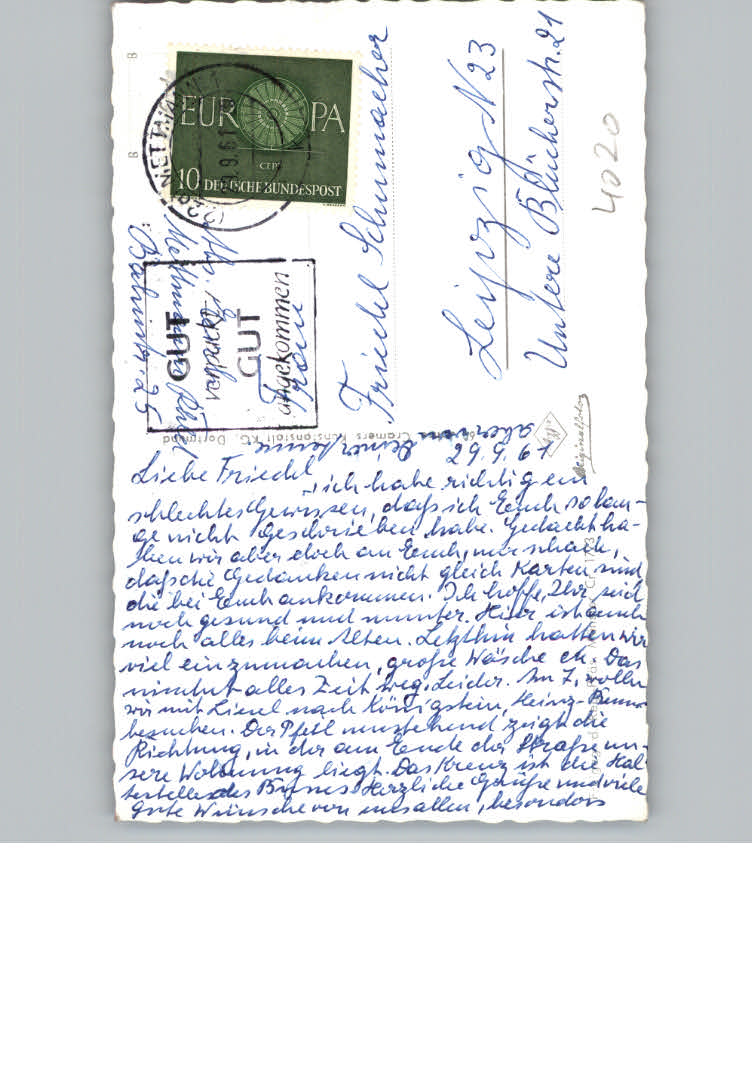 EUROPA
CEPT
10 DEUTSCHE BUNDESPOST
METTMANN
9.61
GUT
GUT
angekommen
Abs.
Mettmann Rhld
Bahnstr. 25
Frau
Friedel Schumacher
Leipzig N 23
Untere Blücherstr. 21
4020
Cramers Kunstanstalt KG, Dortmund
Originalfoto
29.9.61
Liebe Friedel
, ich habe richtig ein
schlechtes Gewissen, daß ich Euch so lan-
ge nicht geschrieben habe. Gedacht ha-
ben wir aber doch an Euch, nur schade,
daß die Gedanken nicht gleich Karten sind
die bei Euch ankommen. Ich hoffe, Ihr seid
noch gesund und munter. Hier ist auch
noch alles beim Alten. Letzthin hatten wir
viel einzumachen, große Wäsche etc. Das
nimmt alles Zeit weg. Leider. Am 7. wollen
wir mit Liesel nach Königstein, Heinz-
besuchen. Der Pfeil umstehend zeigt die
Richtung, in der am Ende der Straße un-
sere Wohnung liegt. Das Kreuz ist die Hal-
testelle des Busses. Herzliche Grüße und viele
gute Wünsche von uns allen, besonders
aber von Deiner